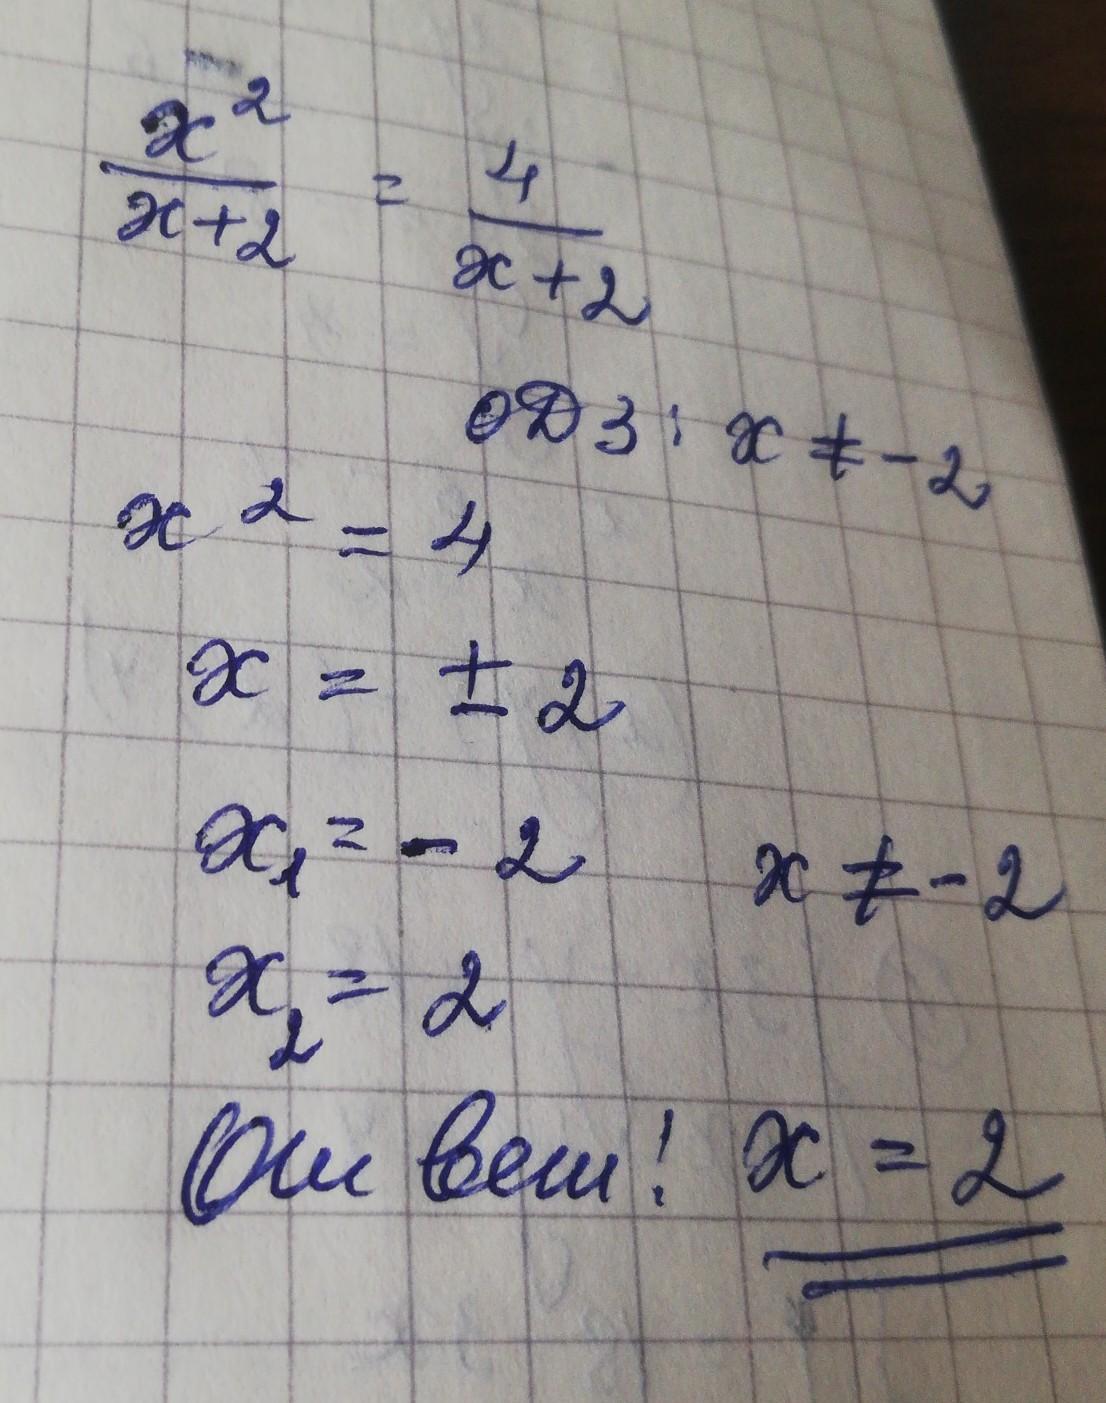 x²/(x+2) = 4/(x+2)
ОДЗ: x ≠ -2
x² = 4
x = ± 2
x₁ = - 2 x ≠ - 2
x₂ = 2
Ответ: x = 2